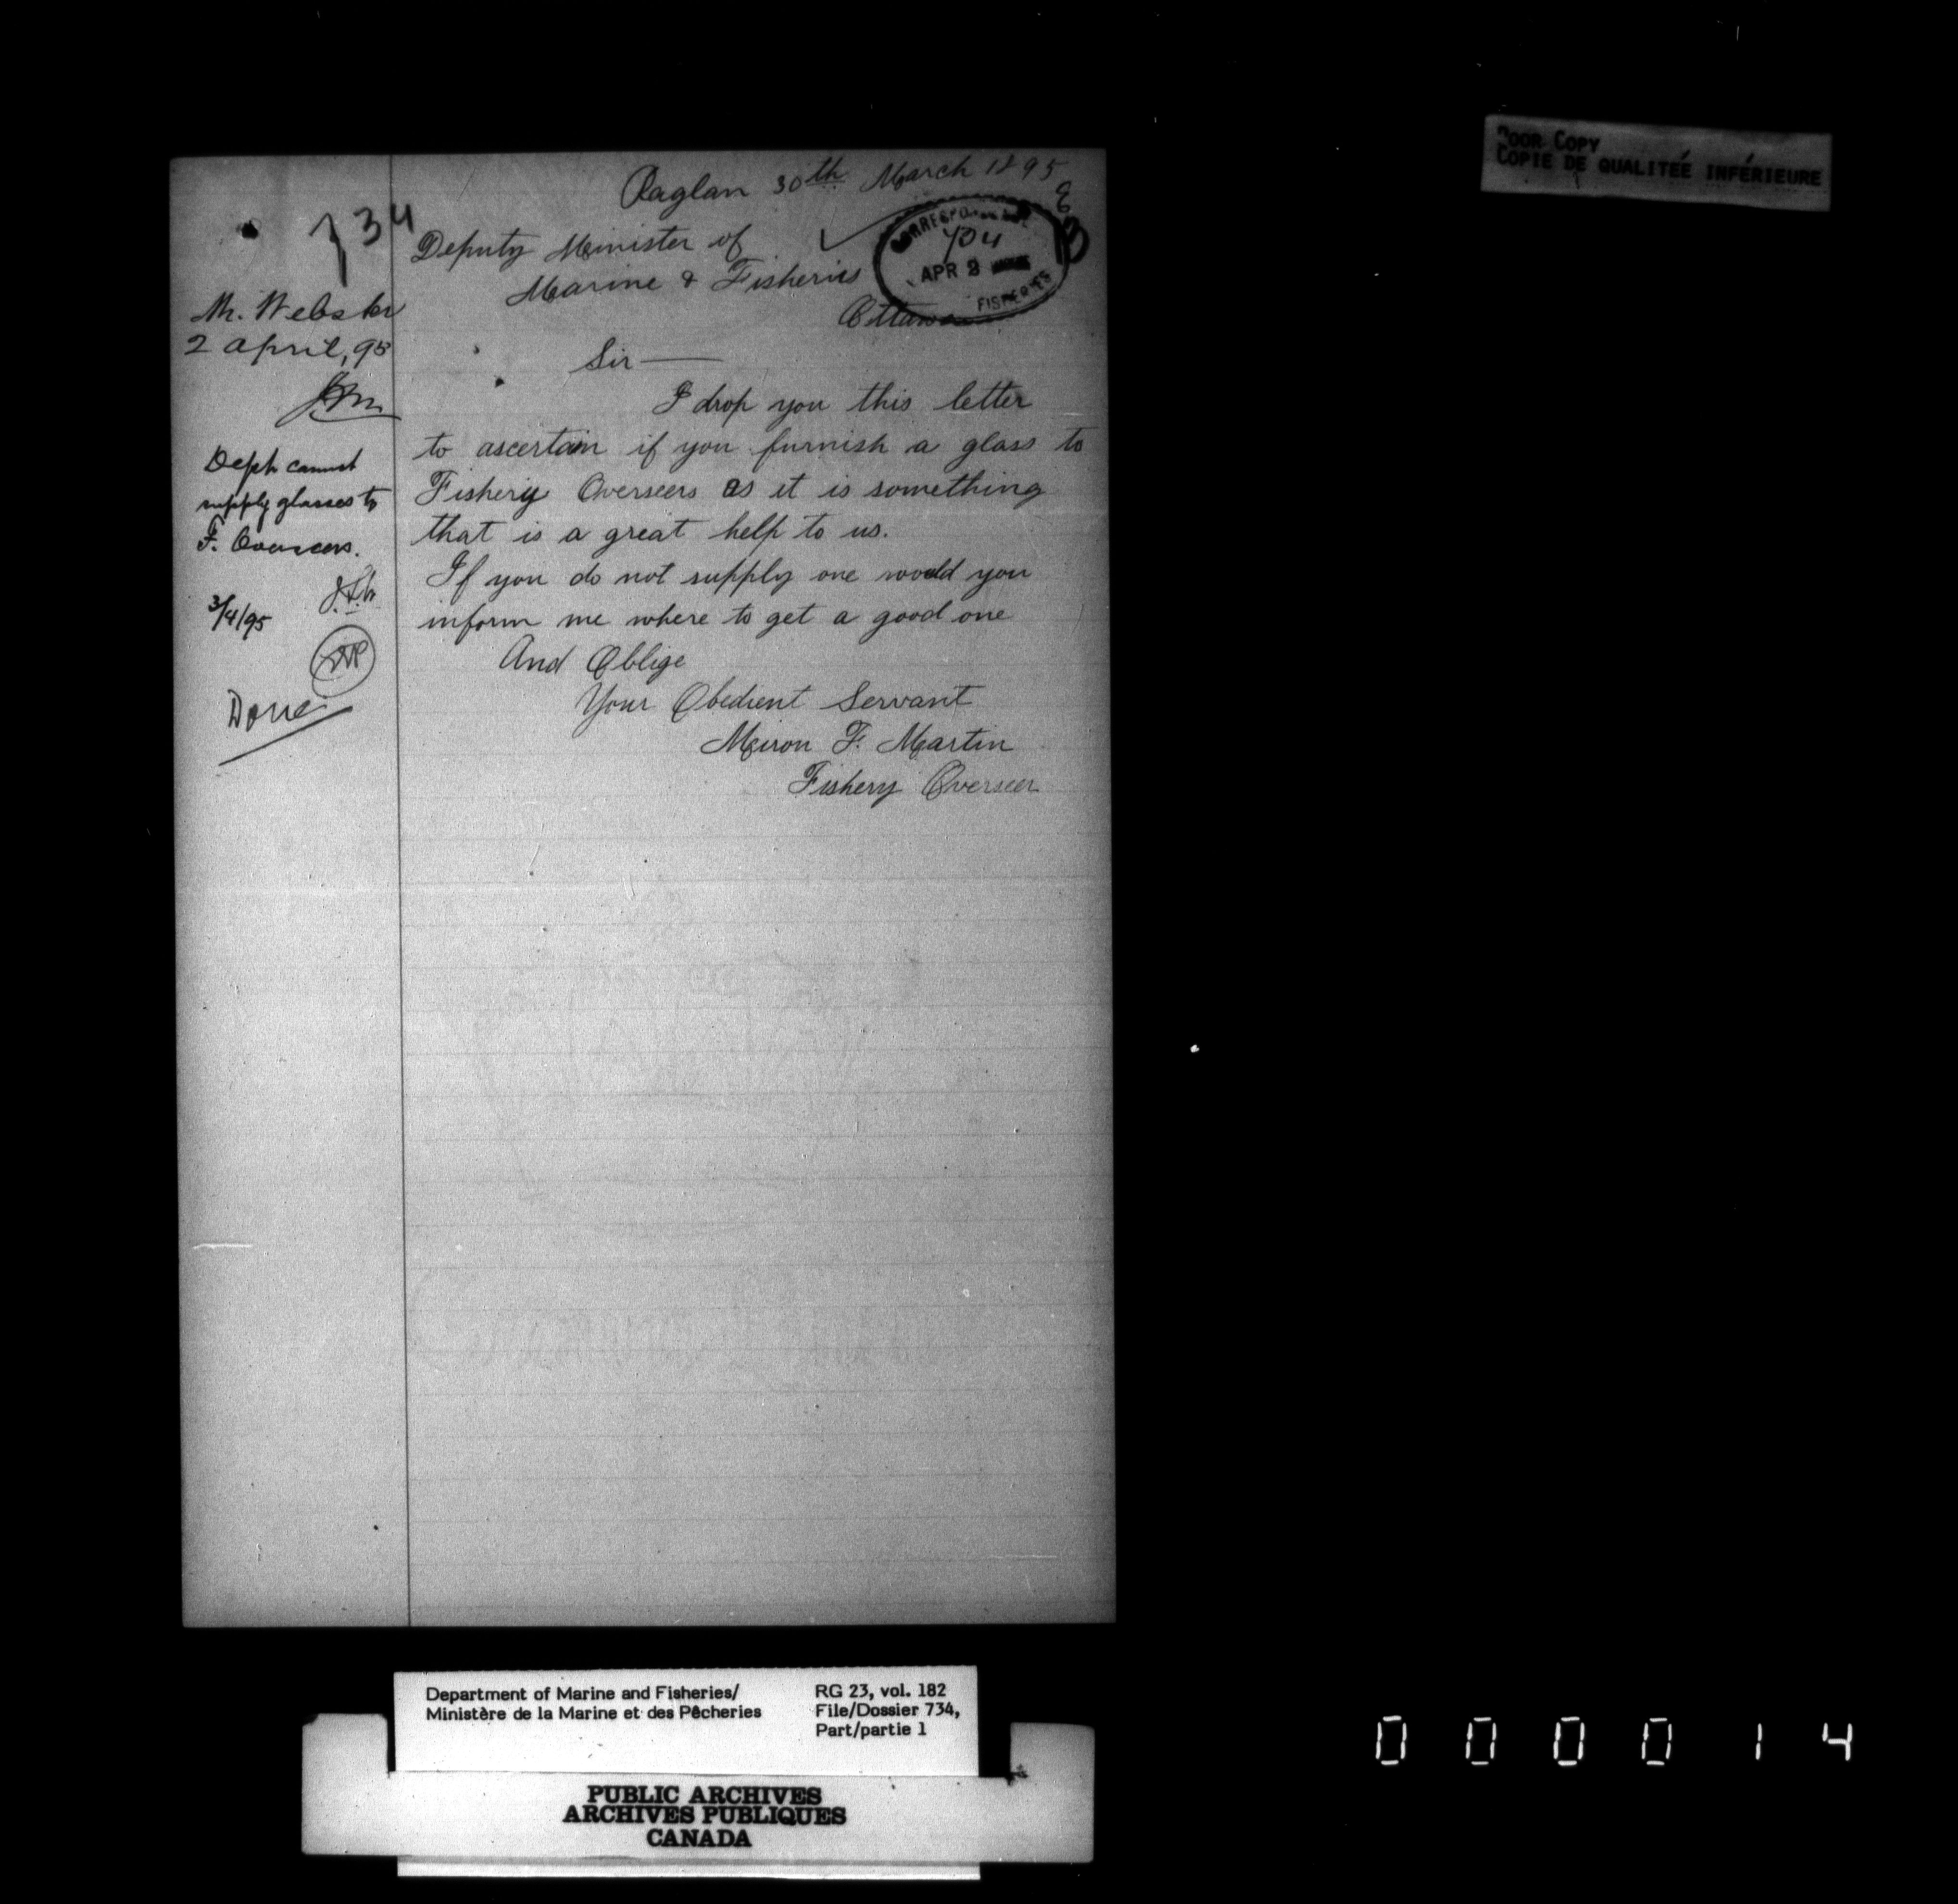 POOR COPY
COPIE DE QUALITEÉ INFÉRIEURE
Raglan 30th March 1895
734
Deputy Minister of
Marine & Fisheries
Ottawa
CORRESPONDENCE
734
APR 2
FISHERIES
Mr. Webster
2 april, 95
Sir —
I drop you this letter
to ascertain if you furnish a glass to
Fishery Overseers as it is something
that is a great help to us.
If you do not supply one would you
inform me where to get a good one
And Oblige
Your Obedient Servant
Meron F. Martin
Fishery Overseer
Dept. cannot
supply glasses to
F. Overseers.
3/4/95
Done
Department of Marine and Fisheries/
Ministère de la Marine et des Pêcheries
RG 23, vol. 182
File/Dossier 734,
Part/partie 1
PUBLIC ARCHIVES
ARCHIVES PUBLIQUES
CANADA
000014